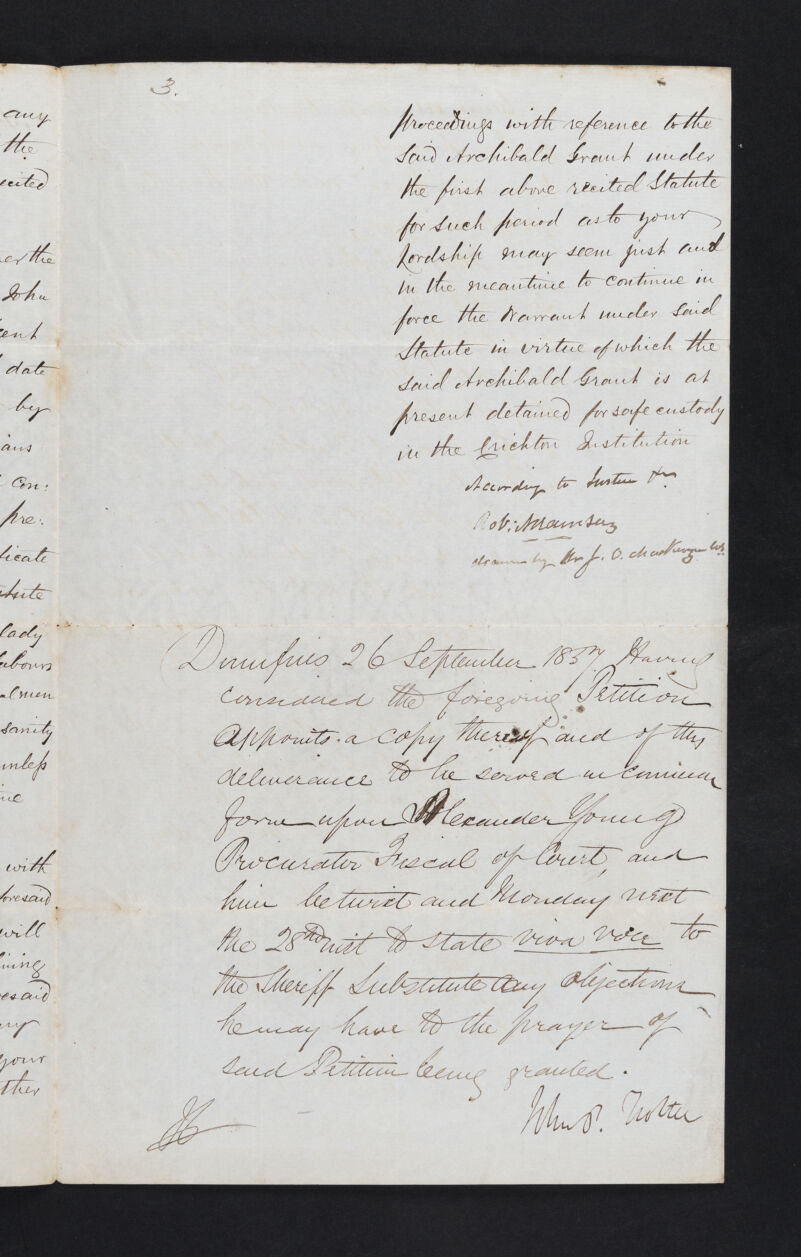 any
the
recited
er the
John
ent
date
by
ians
Con:
pre:
ficate
lady
labours
men
sanity
unless
with
foresaid
will
ining
esaid
ny
your
ther
3.
proceedings with reference to the
said Archibald Grant under
the first above recited Statute
for such period as to your
Lordship may seem just and
in the meantime to continue in
force the Warrant under said
Statute in virtue of which the
said Archibald Grant is at
present detained for safe custody
in the Crichton Institution
According to Justice &c
Rob:
drawn by Mr J. O. MacKenzie WS
Dumfries 26 September 1857. Having
considered the foregoing Petition
Appoints a copy thereof and of this
deliverance to be served in common
form upon Alexander Young
Procurator Fiscal of Court, and
him betwixt and Monday next
the 28th inst to state viva voce to
the Sheriff Substitute any objections
he may have to the prayer of
said Petition being granted.
John P. Trotter